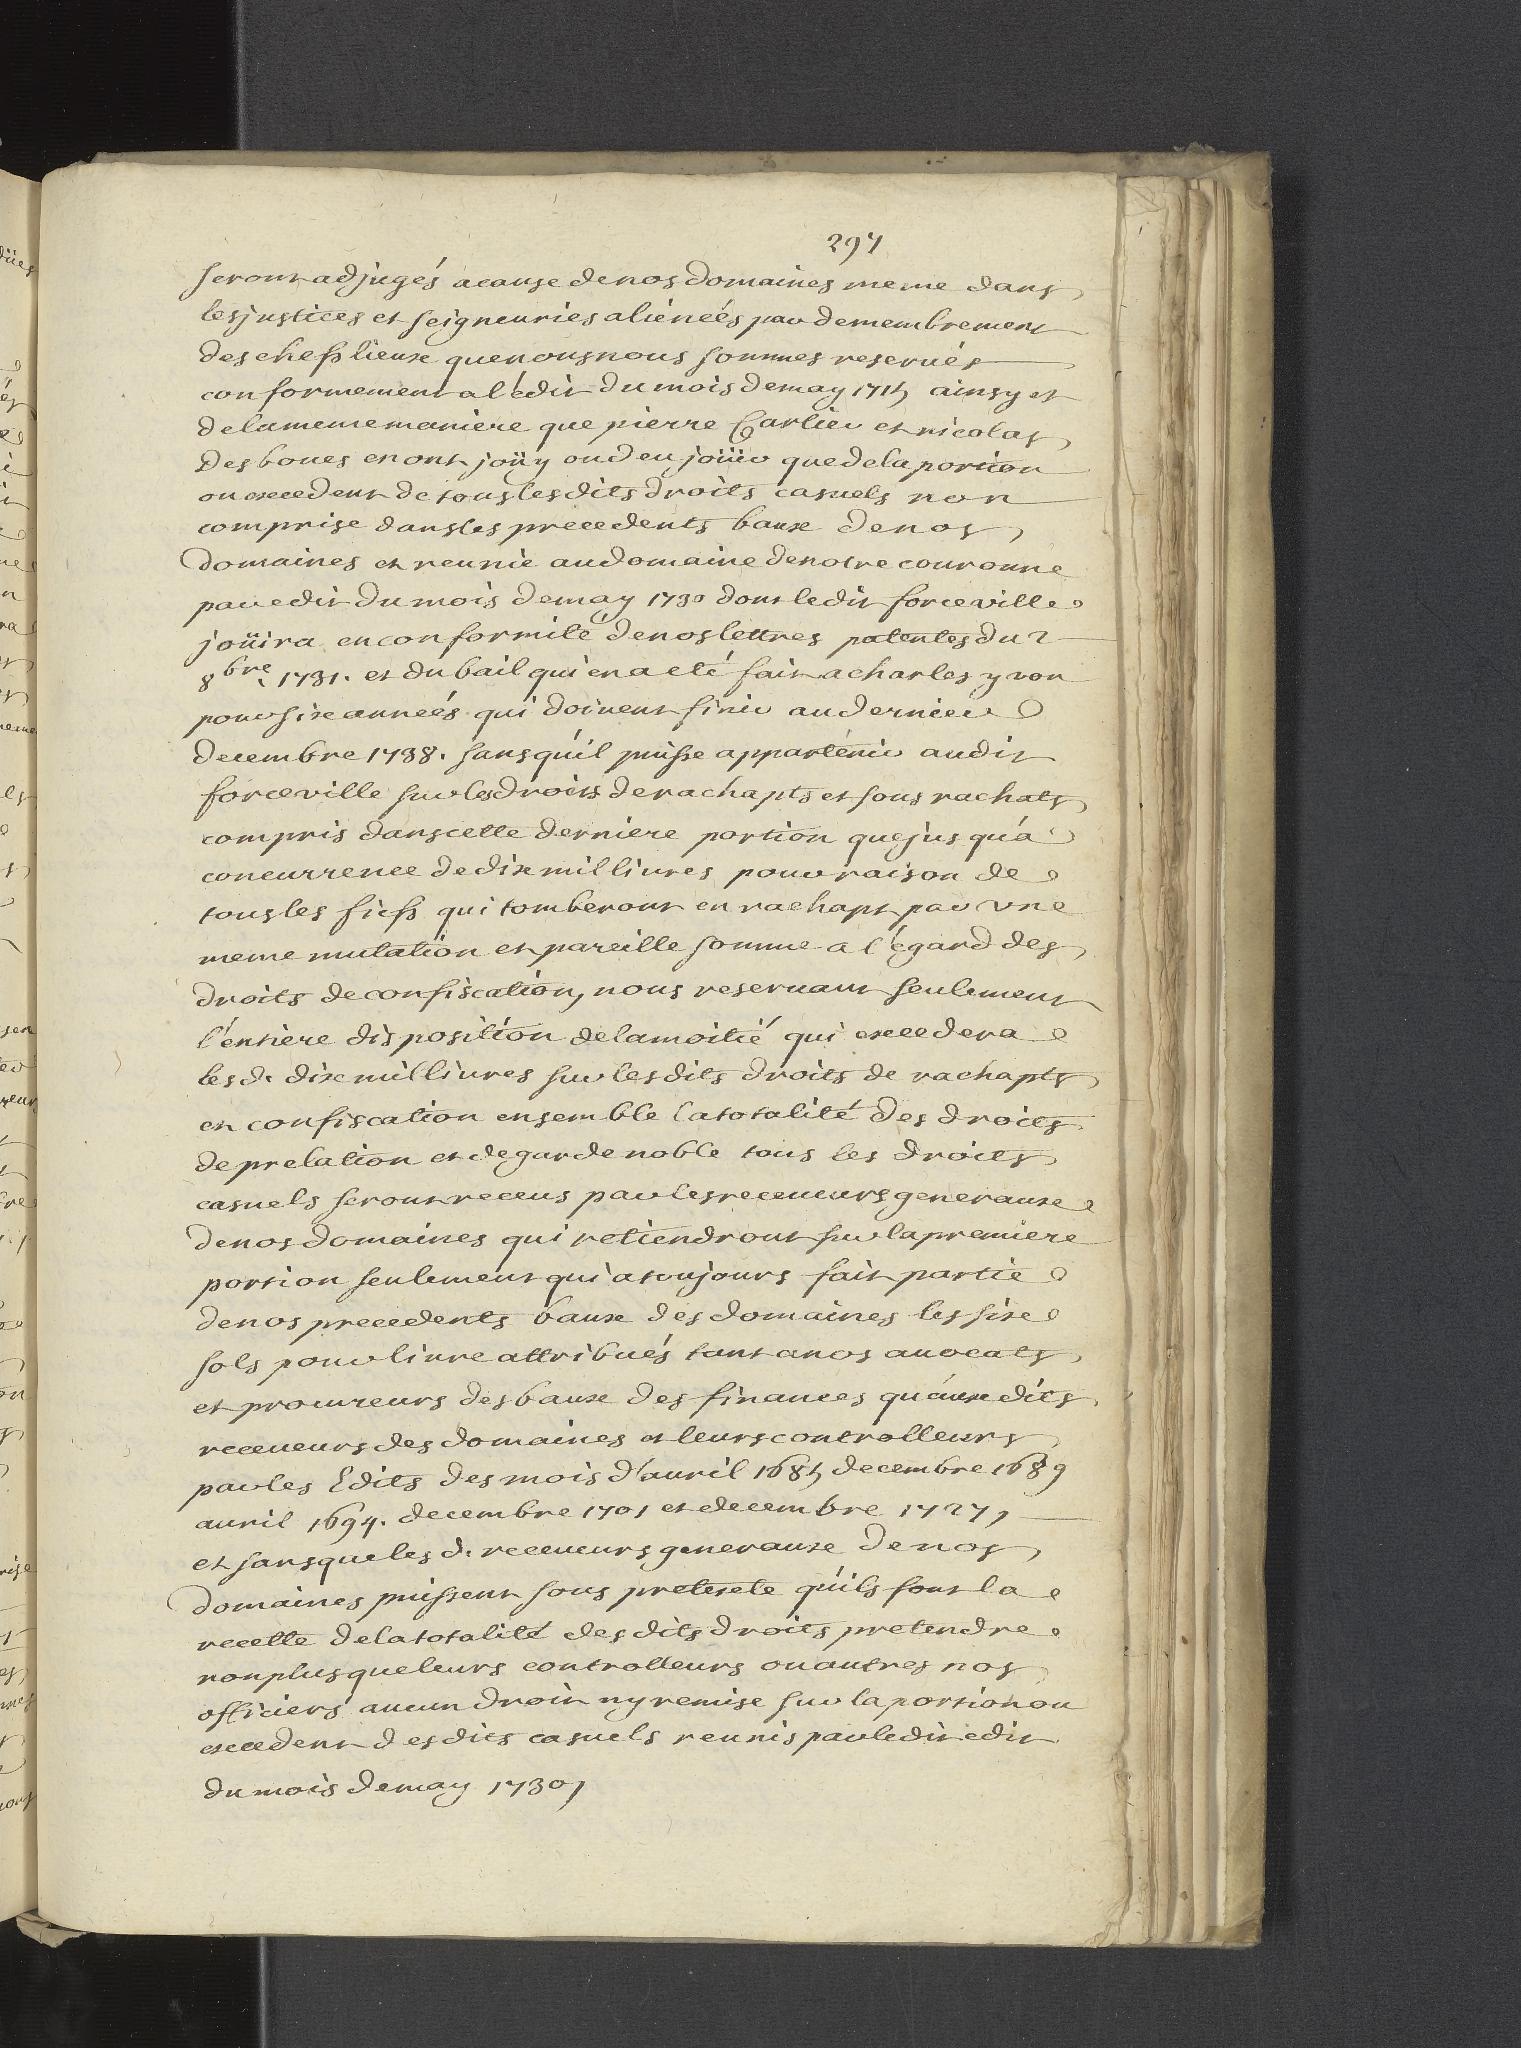 297
seront adjugés a cause de nos domaines meme dans
les justices et seigneuries alienéés par demembrement
des chefs lieux que nous nous sommes reservés
conformement a l'édit du mois de may 1715 ainsy et
de la meme maniere que pierre Carlier et nicolas
des boues en ont joüy ou deu joüir que de la portion
ou excedent de tous les dits droits casuels non
comprise dans les precedents baux de nos
domaines et reunie au domaine de notre couronne
par edit du mois de may 1730 dont le dit forceville
joüira en conformité de nos lettres patentes du 2
8bre. 1731. et du bail qui en a eté fait a charles yvon
pour six annéés qui doivent finir au dernier
decembre 1738. sans qu'il puisse appartenir audit
forceville sur les droits de rachapts et sous rachats
compris dans cette derniere portion que jusqu'a
concurrence de dix mil livres pour raison de
tous les fiefs qui tomberont en rachapt par une
meme mutation et pareille somme a l'égard des
droits de confiscation, nous reservant seulement
l'entière disposition de la moitié qui excedera
les d. dix mil livres sur les dits droits de rachapts
et confiscation ensemble la totalité des droits
de prelation et de garde noble tous les droits
casuels seront receus par les receveurs generaux
de nos domaines qui retiendront sur la premiere
portion seulement qui a toujours fait partie
de nos precedents baux des domaines les six
sols pour livre attribués tant a nos avocats
et procureurs des baux des finances qu'aux dits
receveurs des domaines et leurs controlleurs
par les Edits des mois d'avril 1685 decembre 1689
avril 1694. decembre 1701 et decembre 1727,
et sans que les d. receveurs generaux de nos
domaines puissent sous pretexte qu'ils font la
recette de la totalité des dits droits pretendre
non plus que leurs controlleurs ou autres nos
officiers aucun droit ny remise sur la portion ou
excedent des dits casuels reunis par le dit edit
du mois de may 1730,